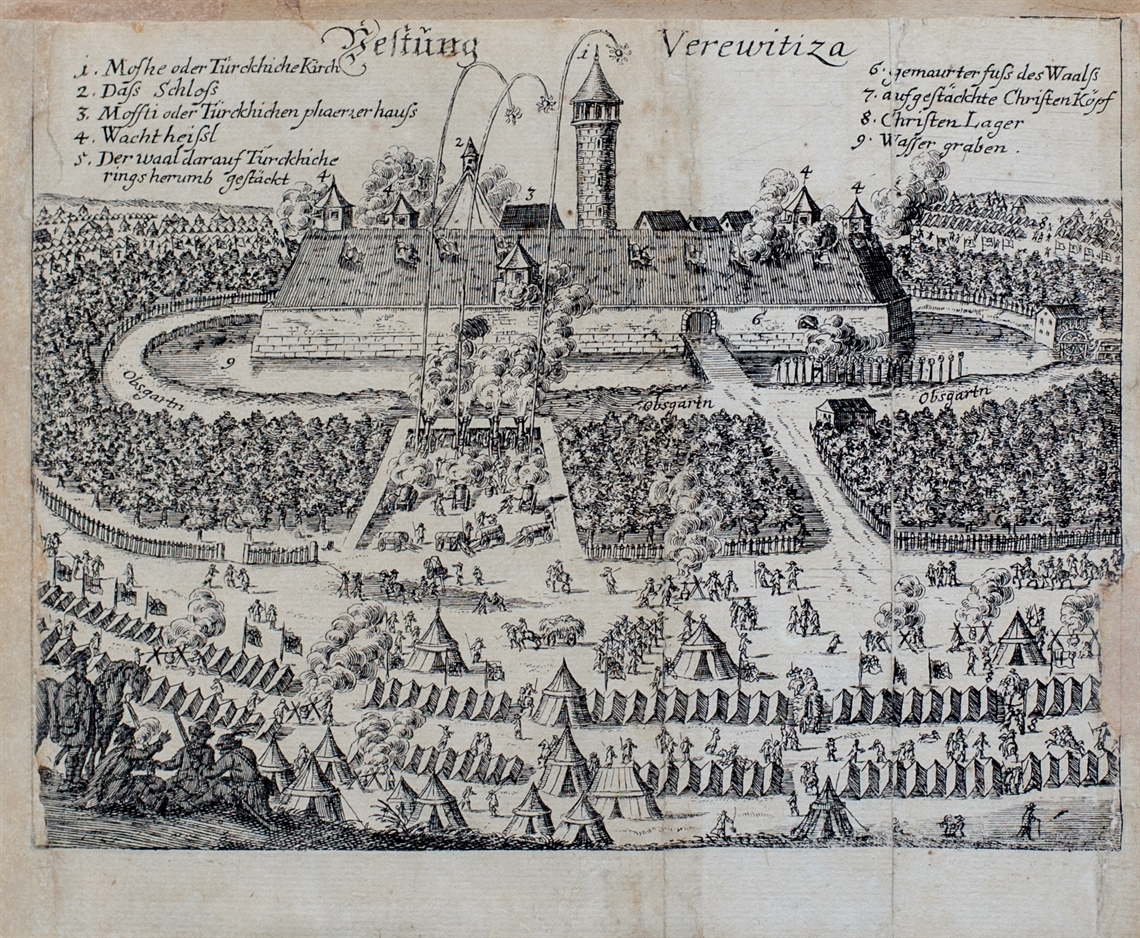 Vestŭng Verewitiza
1. Moshe oder Türckhiche Kirch
2. Daß Schloß
3. Moffti oder Türckhichen phaerrer hauß
4. Wacht heißl
5. Der waal darauf Türckhiche
rings herumb gestäckt
6. gemaurter fuß des Waalß
7. aufgestäckhte Christen Köpf
8. Christen Lager
9. Wasser graben.
1
2
3
4
4
4
4
8
6
9
Obsgartn
Obsgartn
Obsgartn